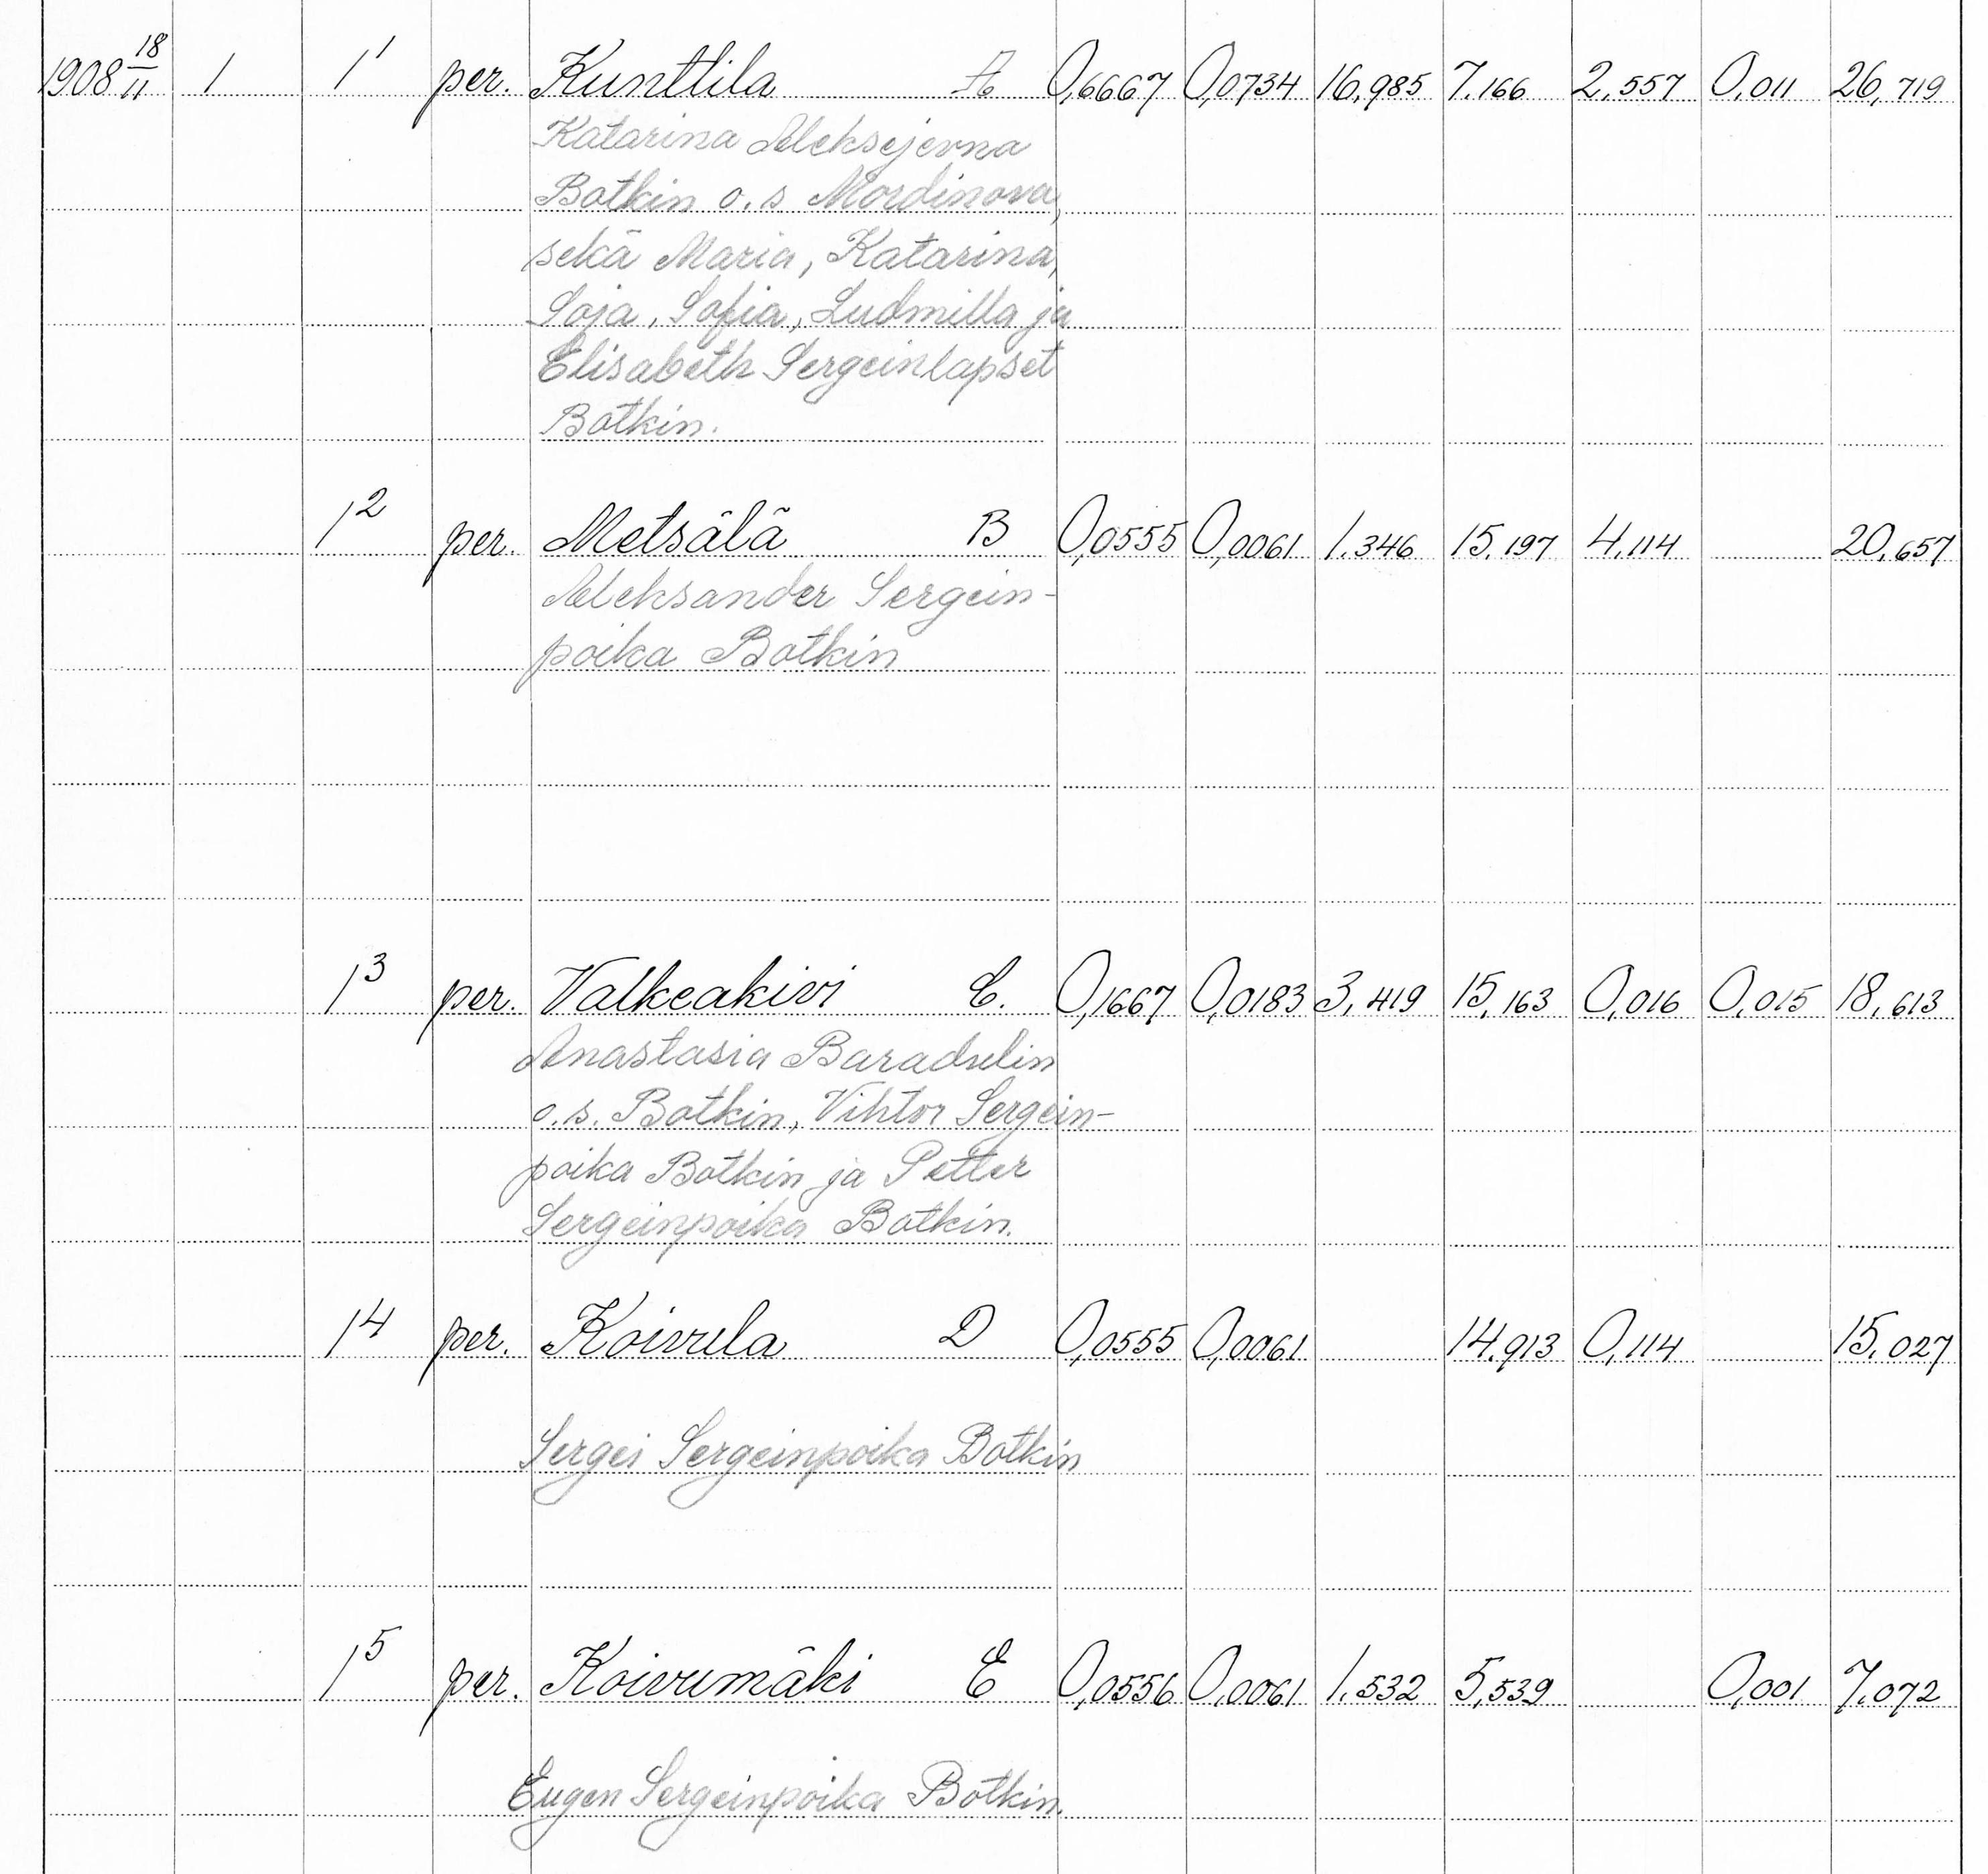 1908 18/11 1 1¹ per. Kunttila A 0,6667 0,0734 16,985 7.166 2,557 0,011 26,719
Katarina Aleksejevna
Botkin o.s Mordinova,
sekä Maria, Katarina,
Soja, Sofia, Ludmilla ja
Elisabeth Sergeinlapset
Botkin.
1² per. Metsälä B 0,0555 0,0061 1.346 15,197 4,114 20,657
Aleksander Sergein-
poika Botkin
1³ per. Valkeakivi C. 0,1667 0,0183 3,419 15,163 0,016 0,015 18,613
Anastasia Baradulin
o.s. Botkin, Vihtor Sergein-
poika Botkin ja Petter
Sergeinpoika Botkin.
1⁴ per. Koivula D 0,0555 0,0061 14,913 0,114 15,027
Sergei Sergeinpoika Botkin
1⁵ per. Koivumäki E 0,0556 0,0061 1.532 5,539 0,001 7.072
Eugen Sergeinpoika Botkin.